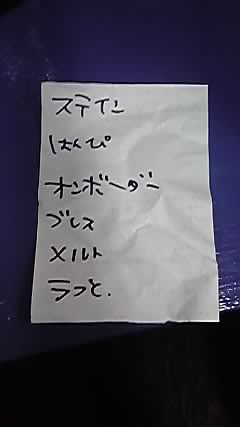 ステイン
はんぴ
オンボーダー
ブレス
メルト
ラフと.